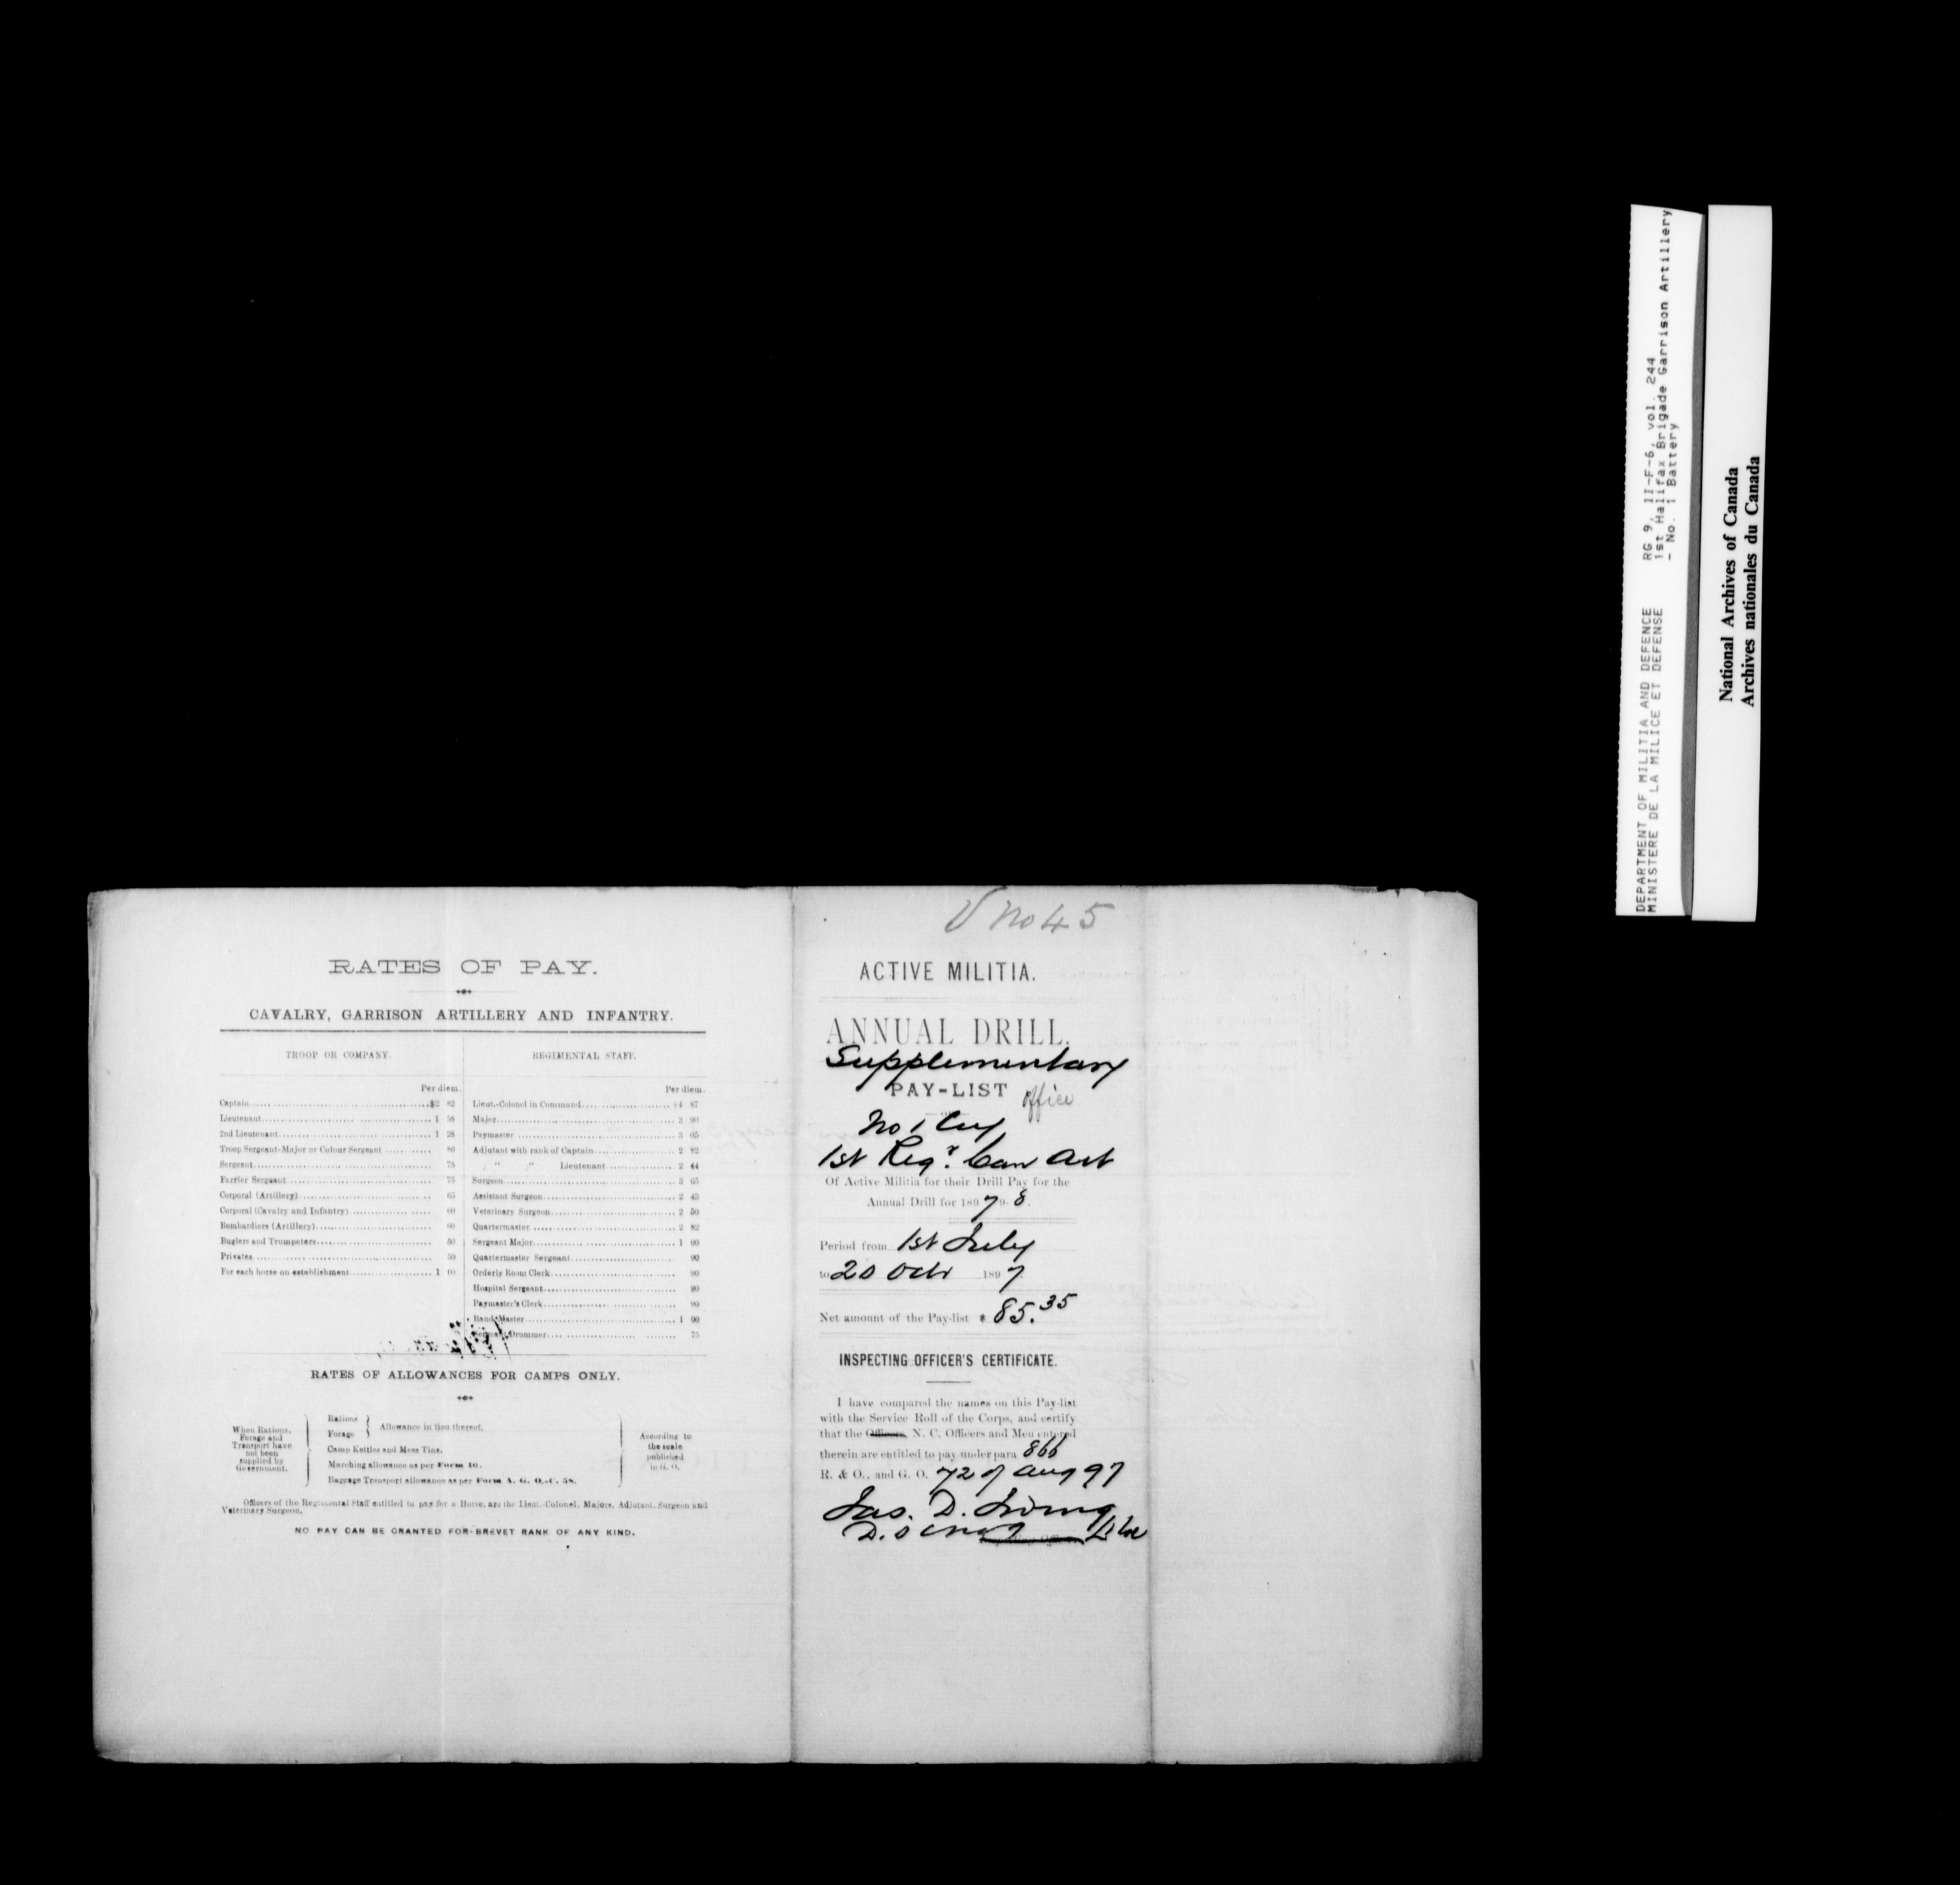 RATES OF PAY.
CAVALRY, GARRISON ARTILLERY AND INFANTRY.
TROOP OR COMPANY.
Per diem.
Captain........ $2 82
Lieutenant........ 1 58
2nd Lieutenant........ 1 28
Troop Sergeant-Major or Colour Sergeant........ 80
Sergeant........ 75
Farrier Sergeant........ 75
Corporal (Artillery)........ 65
Corporal (Cavalry and Infantry)........ 60
Bombardiers (Artillery)........ 60
Buglers and Trumpeters........ 50
Privates........ 50
For each horse on establishment........ 1 00
REGIMENTAL STAFF.
Per diem.
Lieut.-Colonel in Command........ $4 87
Major........ 3 90
Paymaster........ 3 05
Adjutant with rank of Captain........ 2 82
" " Lieutenant........ 2 44
Surgeon........ 3 65
Assistant Surgeon........ 2 43
Veterinary Surgeon........ 2 50
Quartermaster........ 2 82
Sergeant Major........ 1 00
Quartermaster Sergeant........ 90
Orderly Room Clerk........ 90
Hospital Sergeant........ 90
Paymaster's Clerk........ 90
Band Master........ 1 00
Sergeant Drummer........ 75
RATES OF ALLOWANCES FOR CAMPS ONLY.
When Rations,
Forage and
Transport have
not been
supplied by
Government.
Rations
Forage
Allowance in lieu thereof.
Camp Kettles and Mess Tins.
Marching allowance as per Form 10.
Baggage Transport allowance as per Form A. G. O.-C. 58.
According to
the scale
published
in G. O.
Officers of the Regimental Staff entitled to pay for a Horse, are the Lieut.-Colonel, Majors, Adjutant, Surgeon and
Veterinary Surgeon.
NO PAY CAN BE GRANTED FOR BREVET RANK OF ANY KIND.
No 45
ACTIVE MILITIA.
ANNUAL DRILL.
Supplementary
PAY-LIST office
No 1 Coy
1st Regt. Can Art
Of Active Militia for their Drill Pay for the
Annual Drill for 1897 9-8.
Period from 1st July
to 20 Octr 1897
Net amount of the Pay-list $ 85.35
INSPECTING OFFICER'S CERTIFICATE.
I have compared the names on this Pay-list
with the Service Roll of the Corps, and certify
that the Officers, N. C. Officers and Men entered
therein are entitled to pay under para 866
R. & O., and G. O. 72 of Aug 97
Jas. D. Irving
D.O.C.
DEPARTMENT OF MILITIA AND DEFENCE
MINISTERE DE LA MILICE ET DEFENSE
RG 9, II-F-6, vol. 244
1st Halifax Brigade Garrison Artillery
- No. 1 Battery
National Archives of Canada
Archives nationales du Canada